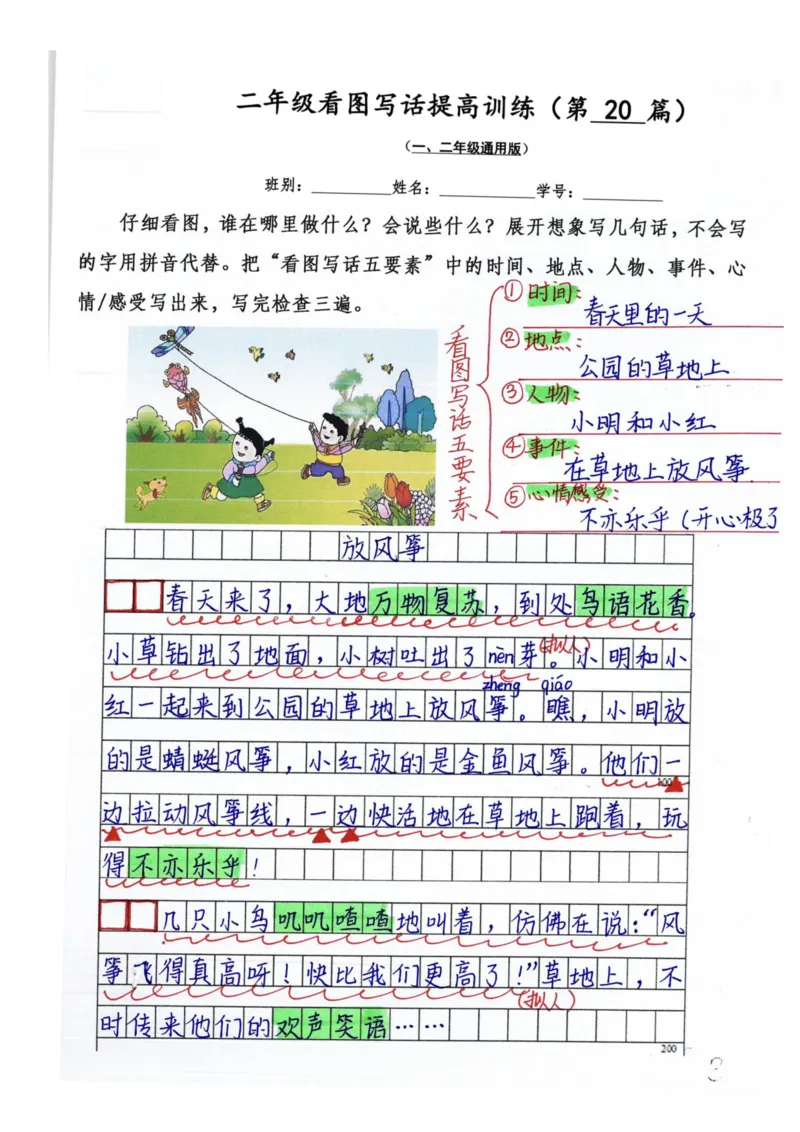 二年级看图写话提高训练（第 20 篇）
（一、二年级通用版）
班别：__________姓名：____________学号：__________
仔细看图，谁在哪里做什么？会说些什么？展开想象写几句话，不会写
的字用拼音代替。把“看图写话五要素”中的时间、地点、人物、事件、心
情/感受写出来，写完检查三遍。
看图写话五要素
①时间：
春天里的一天
②地点：
公园的草地上
③人物：
小明和小红
④事件：
在草地上放风筝
⑤心情感受：
不亦乐乎（开心极了
放风筝
春天来了，大地万物复苏，到处鸟语花香。
小草钻出了地面，小树吐出了nèn芽。（拟人）小明和小
zheng qiáo
红一起来到公园的草地上放风筝。瞧，小明放
的是蜻蜓风筝，小红放的是金鱼风筝。他们一
100
边拉动风筝线，一边快活地在草地上跑着，玩
得不亦乐乎！
几只小鸟叽叽喳喳地叫着，仿佛在说：“风
筝飞得真高呀！快比我们更高了！”草地上，不
（拟人）
时传来他们的欢声笑语……
200